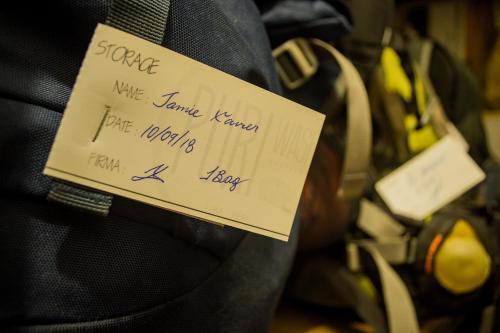 STORAGE
NAME: Jamie Xavier
DATE: 10/09/18
FIRMA: JX 1Bag